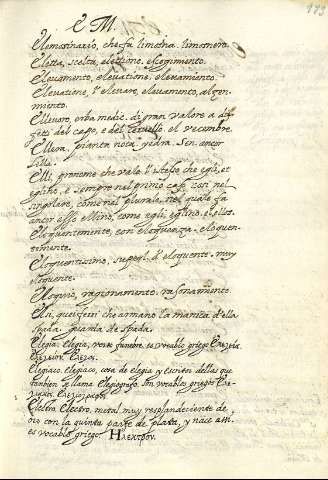 E M.
Elemosinario, che fa limosna. limosnero.
Eletta, scelta, elettione. escogimento.
Elevamento, elevatione, elevamiento.
Elevatione, l'elevare, elevamento, alçamiento.
Elleboro, erba medic. di gran valore a
fetti del capo, e del cervello. el
Ellera, pianta nota. yedra. Sen. ancor
Elli, pronome che vale l'istesso che egli, et
eglino, è sempre nel primo caso così nel
singolare, come nel plurale, nel quale fa
ancor esso ellino, come egli, eglino. el, ellos.
Eloquentemente, con eloquenza, eloquen-
temente.
Eloquentissimo, superl. d'eloquente. muy
eloquente.
Eloquio, ragionamento. rasonamiento.
Elsi, quei ferri che armano la manica della
spada.
Elegia. Elegia, verso funebre, es vocablo griego
Elegiaco. Elegiaco, cosa de elegia y escritor dellas que
tambien se llama Elegiografo. son vocablos griegos
Elettro. Electro, metal muy resplandeciente de
oro con la quinta parte de plata, y nace assi.
es vocablo griego.